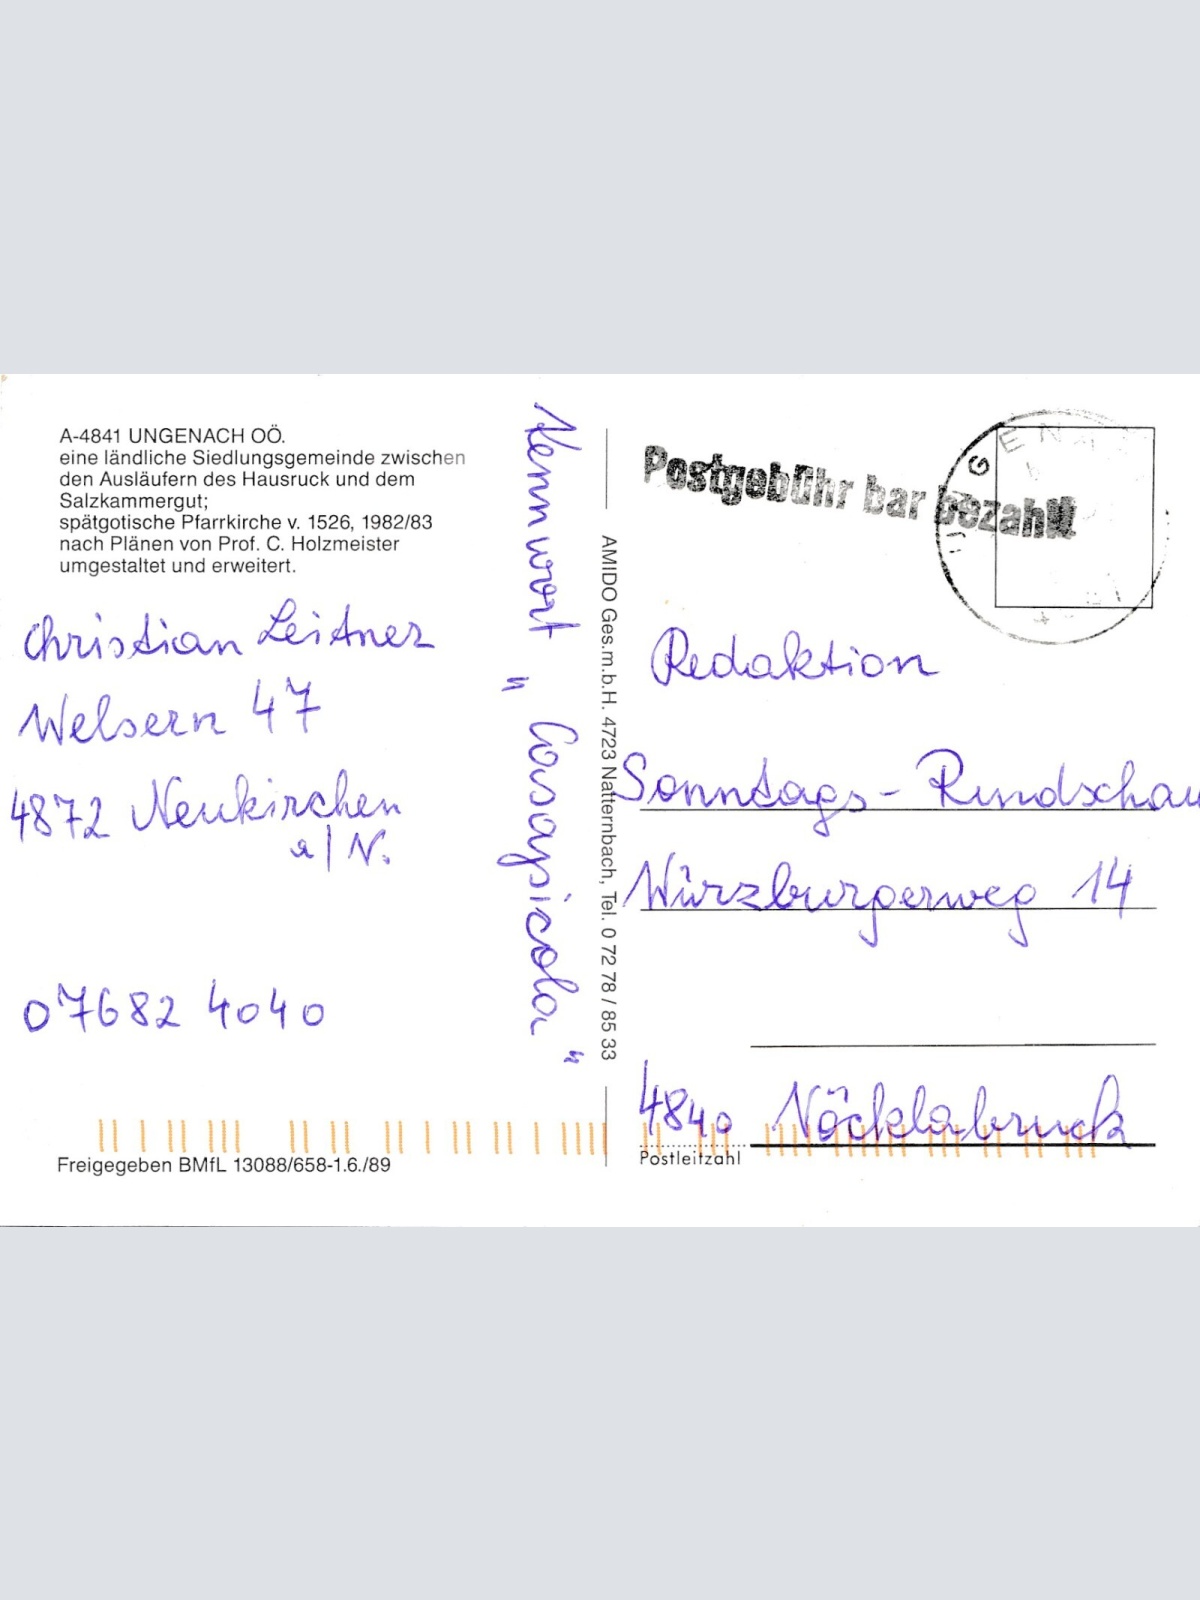 A-4841 UNGENACH OÖ.
eine ländliche Siedlungsgemeinde zwischen
den Ausläufern des Hausruck und dem
Salzkammergut;
spätgotische Pfarrkirche v. 1526, 1982/83
nach Plänen von Prof. C. Holzmeister
umgestaltet und erweitert.
Christian Leitner
Welsern 47
4872 Neukirchen
a/N.
07682 4040
Freigegeben BMfL 13088/658-1.6./89
Kennwort
" Casapicola "
AMIDO Ges.m.b.H. 4723 Natternbach, Tel. 0 72 78 / 85 33
Postgebühr bar bezahlt
Redaktion
Sonntags-Rundschau
Würzburgerweg 14
4840 Vöcklabruck
Postleitzahl